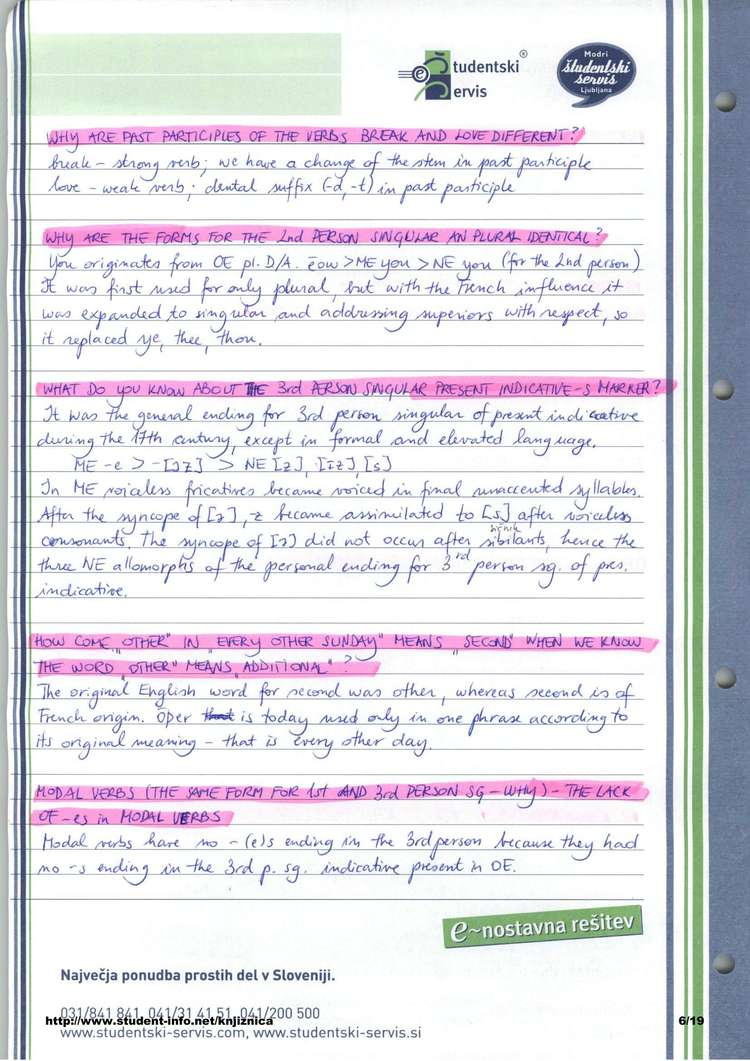 Študentski
Servis
®
Modri
študentski
servis
Ljubljana
WHY ARE PAST PARTICIPLES OF THE VERBS BREAK AND LOVE DIFFERENT?
break - strong verb; we have a change of the stem in past participle
love - weak verb; dental suffix (-d, -t) in past participle
WHY ARE THE FORMS FOR THE 2nd PERSON SINGULAR AN PLURAL IDENTICAL?
You originates from OE pl. D/A. ēow > ME you > NE you (for the 2nd person)
It was first used for only plural, but with the French influence it
was expanded to singular and addressing superiors with respect, so
it replaced ye, thee, thou.
WHAT DO YOU KNOW ABOUT THE 3rd PERSON SINGULAR PRESENT INDICATIVE -S MARKER?
It was the general ending for 3rd person singular of present indicative
during the 17th century, except in formal and elevated language.
ME -e > -[əz] > NE [z], [ɪz], [s]
In ME voiceless fricatives became voiced in final unaccented syllables.
After the syncope of [ə], z became assimilated to [s] after voiceless
consonants. The syncope of [ə] did not occur after sibilants, hence the
three NE allomorphs of the personal ending for 3rd person sg. of pres.
indicative.
HOW COME „OTHER" IN „EVERY OTHER SUNDAY" MEANS „SECOND" WHEN WE KNOW
THE WORD „OTHER" MEANS „ADDITIONAL"?
The original English word for second was other, whereas second is of
French origin. Ōþer is today used only in one phrase according to
its original meaning - that is every other day.
MODAL VERBS (THE SAME FORM FOR 1st AND 3rd PERSON SG - WHY) - THE LACK
OF -es in MODAL VERBS
Modal verbs have no -(e)s ending in the 3rd person because they had
no -s ending in the 3rd p. sg. indicative present in OE.
e~nostavna rešitev
Največja ponudba prostih del v Sloveniji.
031/841 841, 041/31 41 51, 041/200 500
http://www.student-info.net/knjiznica
6/19
www.studentski-servis.com, www.studentski-servis.si